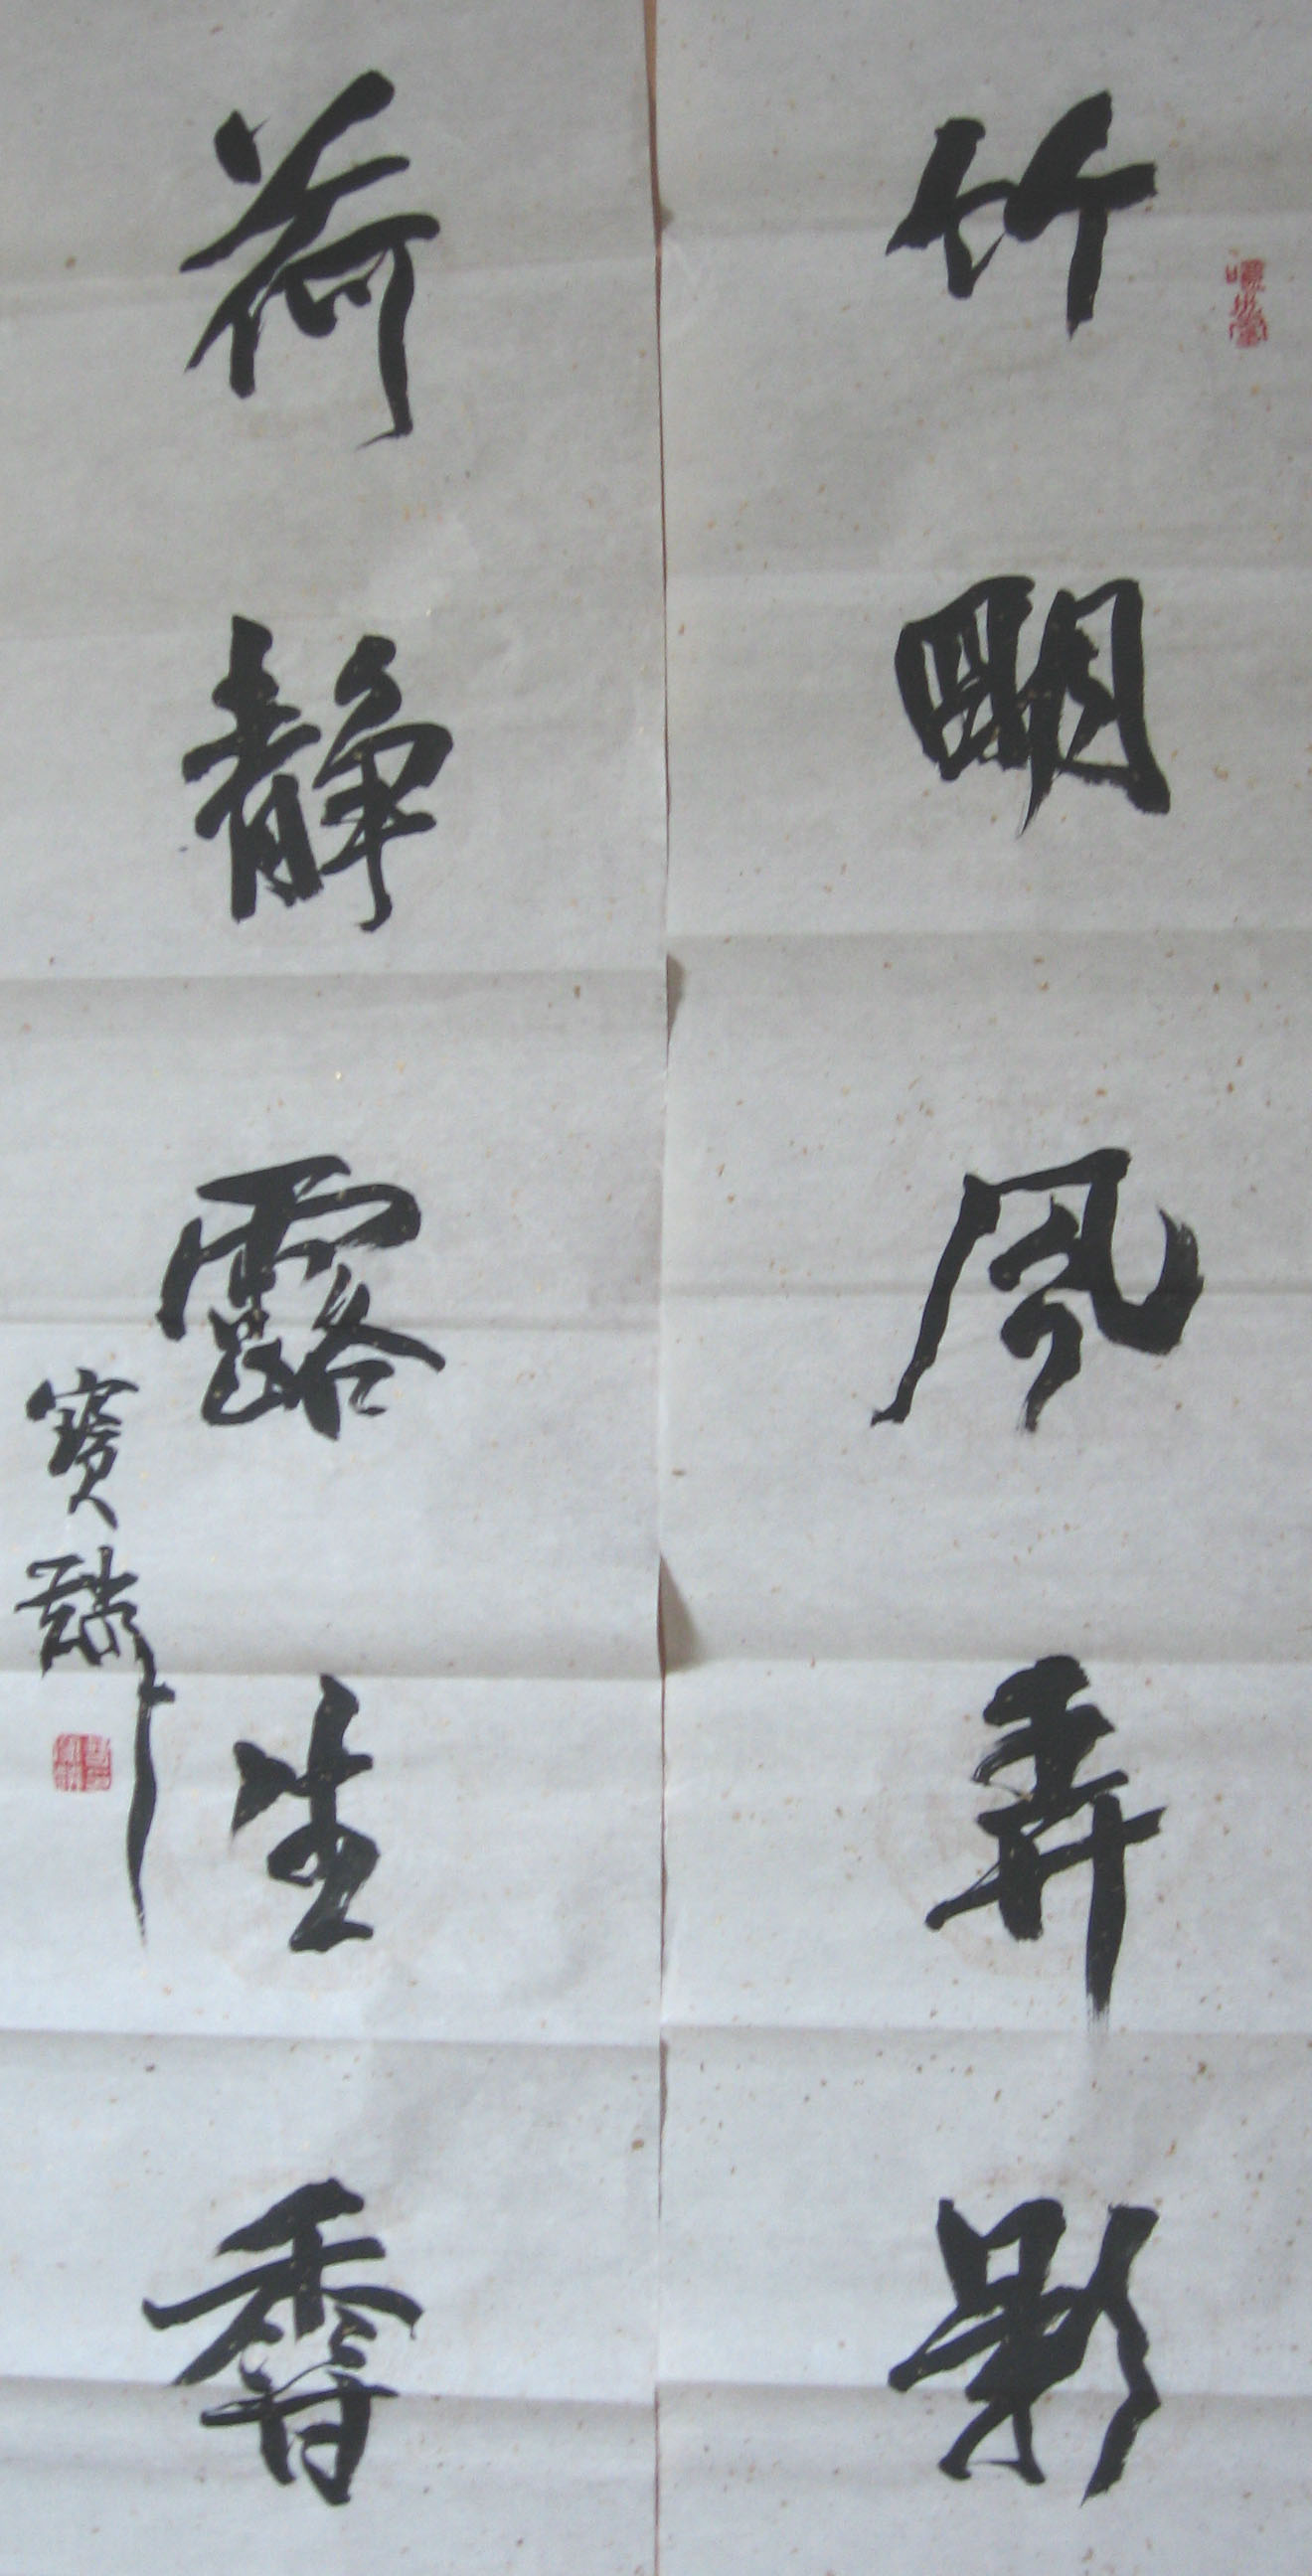 竹朙風弄影
荷靜露生香
寶瑞